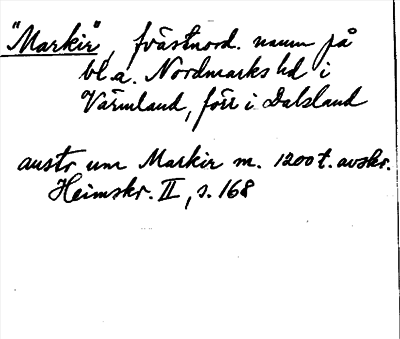 "Markir", fvästnord. namn på
bl a. Nordmarks hd i
Värmland, förr i Dalsland
austr um Markir m. 1200 t. avskr.
Heimskr. II, s. 168